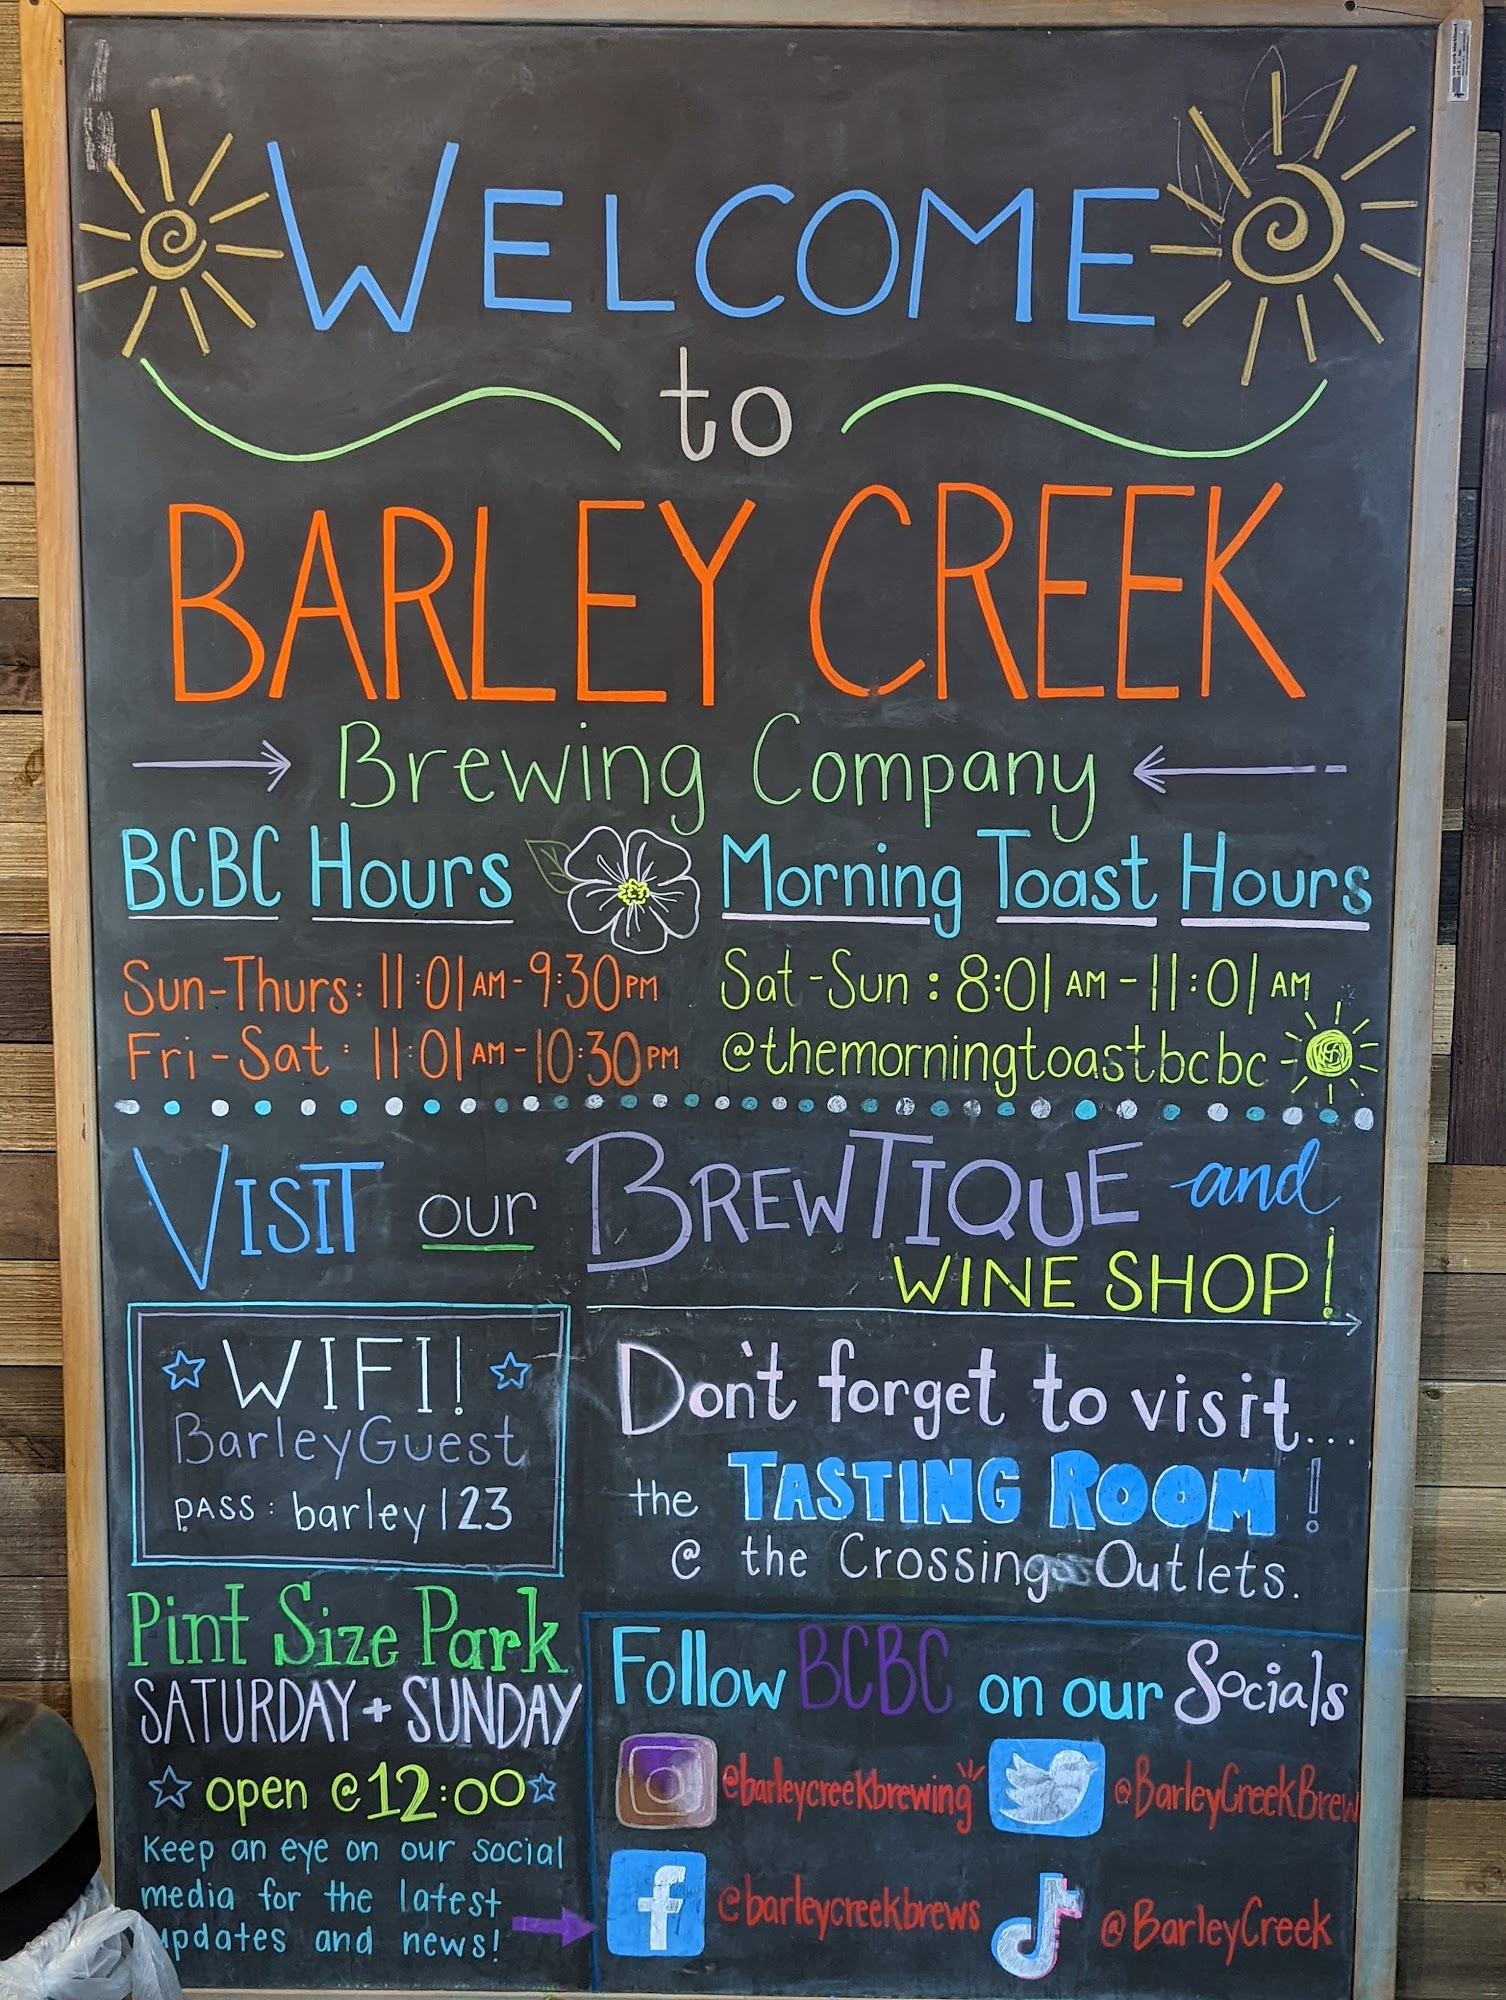 WELCOME
to
BARLEY CREEK
Brewing Company
BCBC Hours
Sun-Thurs: 11:01 AM - 9:30 PM
Fri-Sat: 11:01 AM - 10:30 PM
Morning Toast Hours
Sat-Sun: 8:01 AM - 11:01 AM
@themorningtoastbcbc
VISIT our BREWTIQUE and
WINE SHOP!
WIFI!
BarleyGuest
PASS: barley123
Don't forget to visit...
the TASTING ROOM!
@ the Crossings Outlets.
Pint Size Park
SATURDAY + SUNDAY
open @ 12:00
Keep an eye on our social
media for the latest
updates and news!
Follow BCBC on our Socials
@barleycreekbrewing
@BarleyCreekBrew
@barleycreekbrews
@BarleyCreek